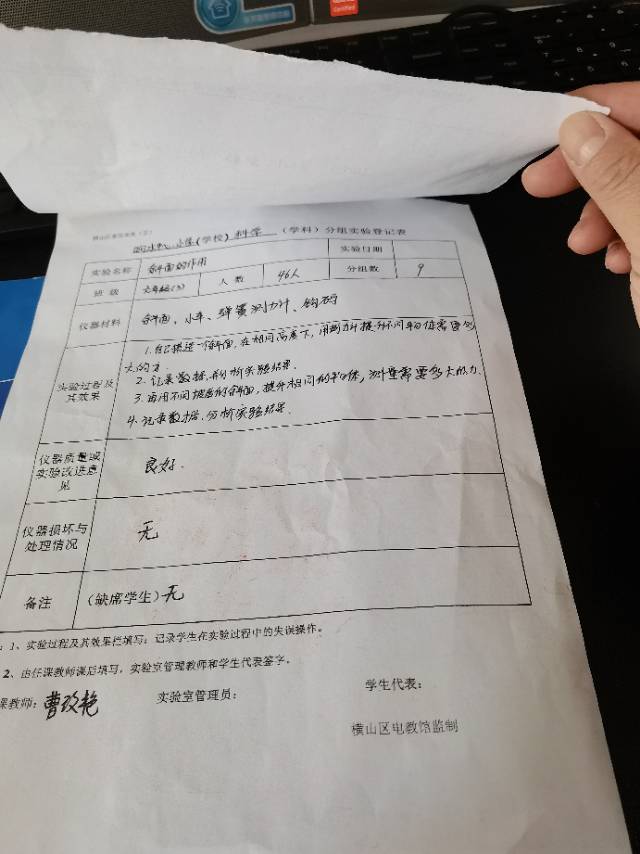 小学(学校) 科学 (学科) 分组实验登记表
实验名称 斜面的作用 实验日期
班 级 六年级(3) 人 数 46人 分组数 9
仪器材料 斜面、小车、弹簧测力计、钩码
实验过程及其效果
1.自己搭建一个斜面,在相同高度下,用测力计提升不同重物需要多
大的力.
2.记录数据,并分析实验结果.
3.再用不同坡度的斜面,提升相同的重物,测量需要多大的力.
4.记录数据.分析实验结果.
仪器质量或实验改进意见 良好.
仪器损坏与处理情况 无
备注 (缺席学生) 无
1、实验过程及其效果栏填写:记录学生在实验过程中的失误操作。
2、由任课教师课后填写,实验室管理教师和学生代表签字。
课教师:曹改艳 实验室管理员: 学生代表:
横山区电教馆监制